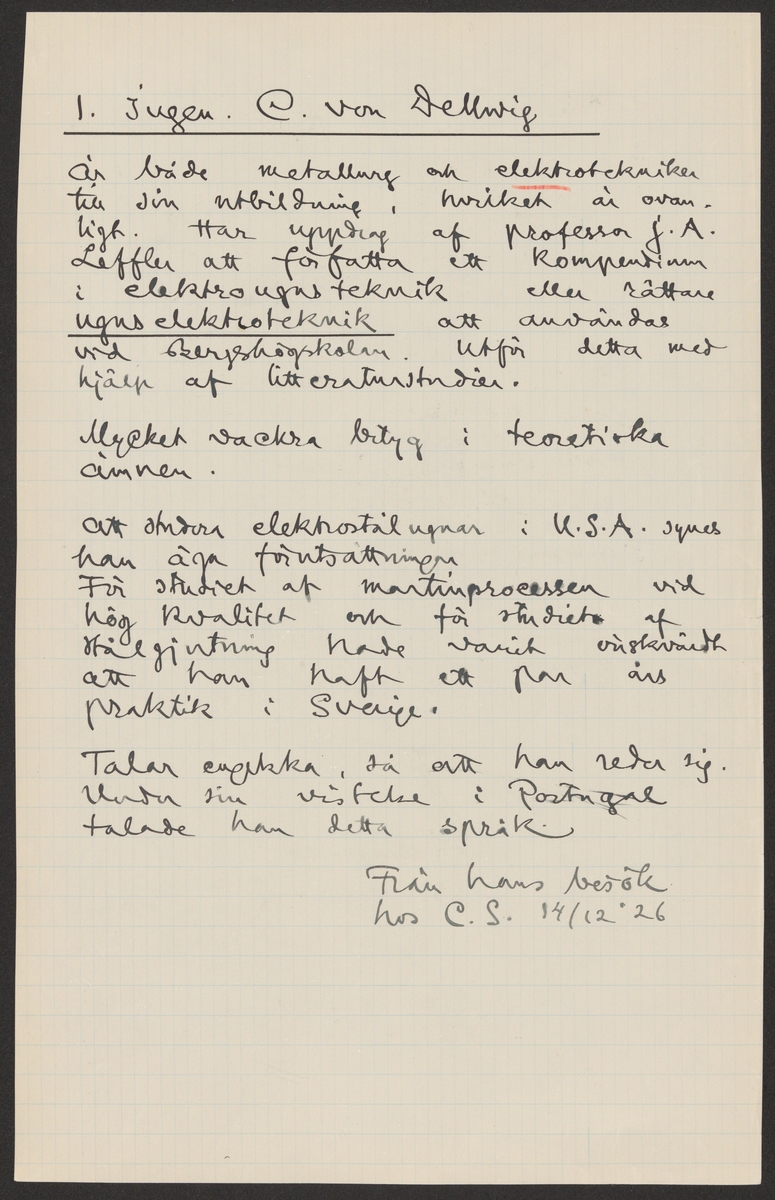 1. Ingen. C. von Dellwig
Är både metallurg och elektrotekniker
till sin utbildning, hvilket är ovan-
ligt. Har uppdrag af professor J. A.
Leffler att författa ett kompendium
i elektrougnsteknik eller rättare
ugnselektroteknik att användas
vid Bergshögskolan. Utför detta med
hjälp af litteraturstudier.
Mycket vackra betyg i teoretiska
ämnen.
Att studera elektrostålugnar i U.S.A. synes
han äga förutsättningar
För studiet af martinprocessen vid
hög kvalitet och för studiet af
stålgjutning hade varit önskvärdt
att han haft ett par års
praktik i Sverige.
Talar engelska, så att han reder sig.
Under sin vistelse i Portugal
talade han detta språk.
Från hans besök
hos C.S. 14/12 '26